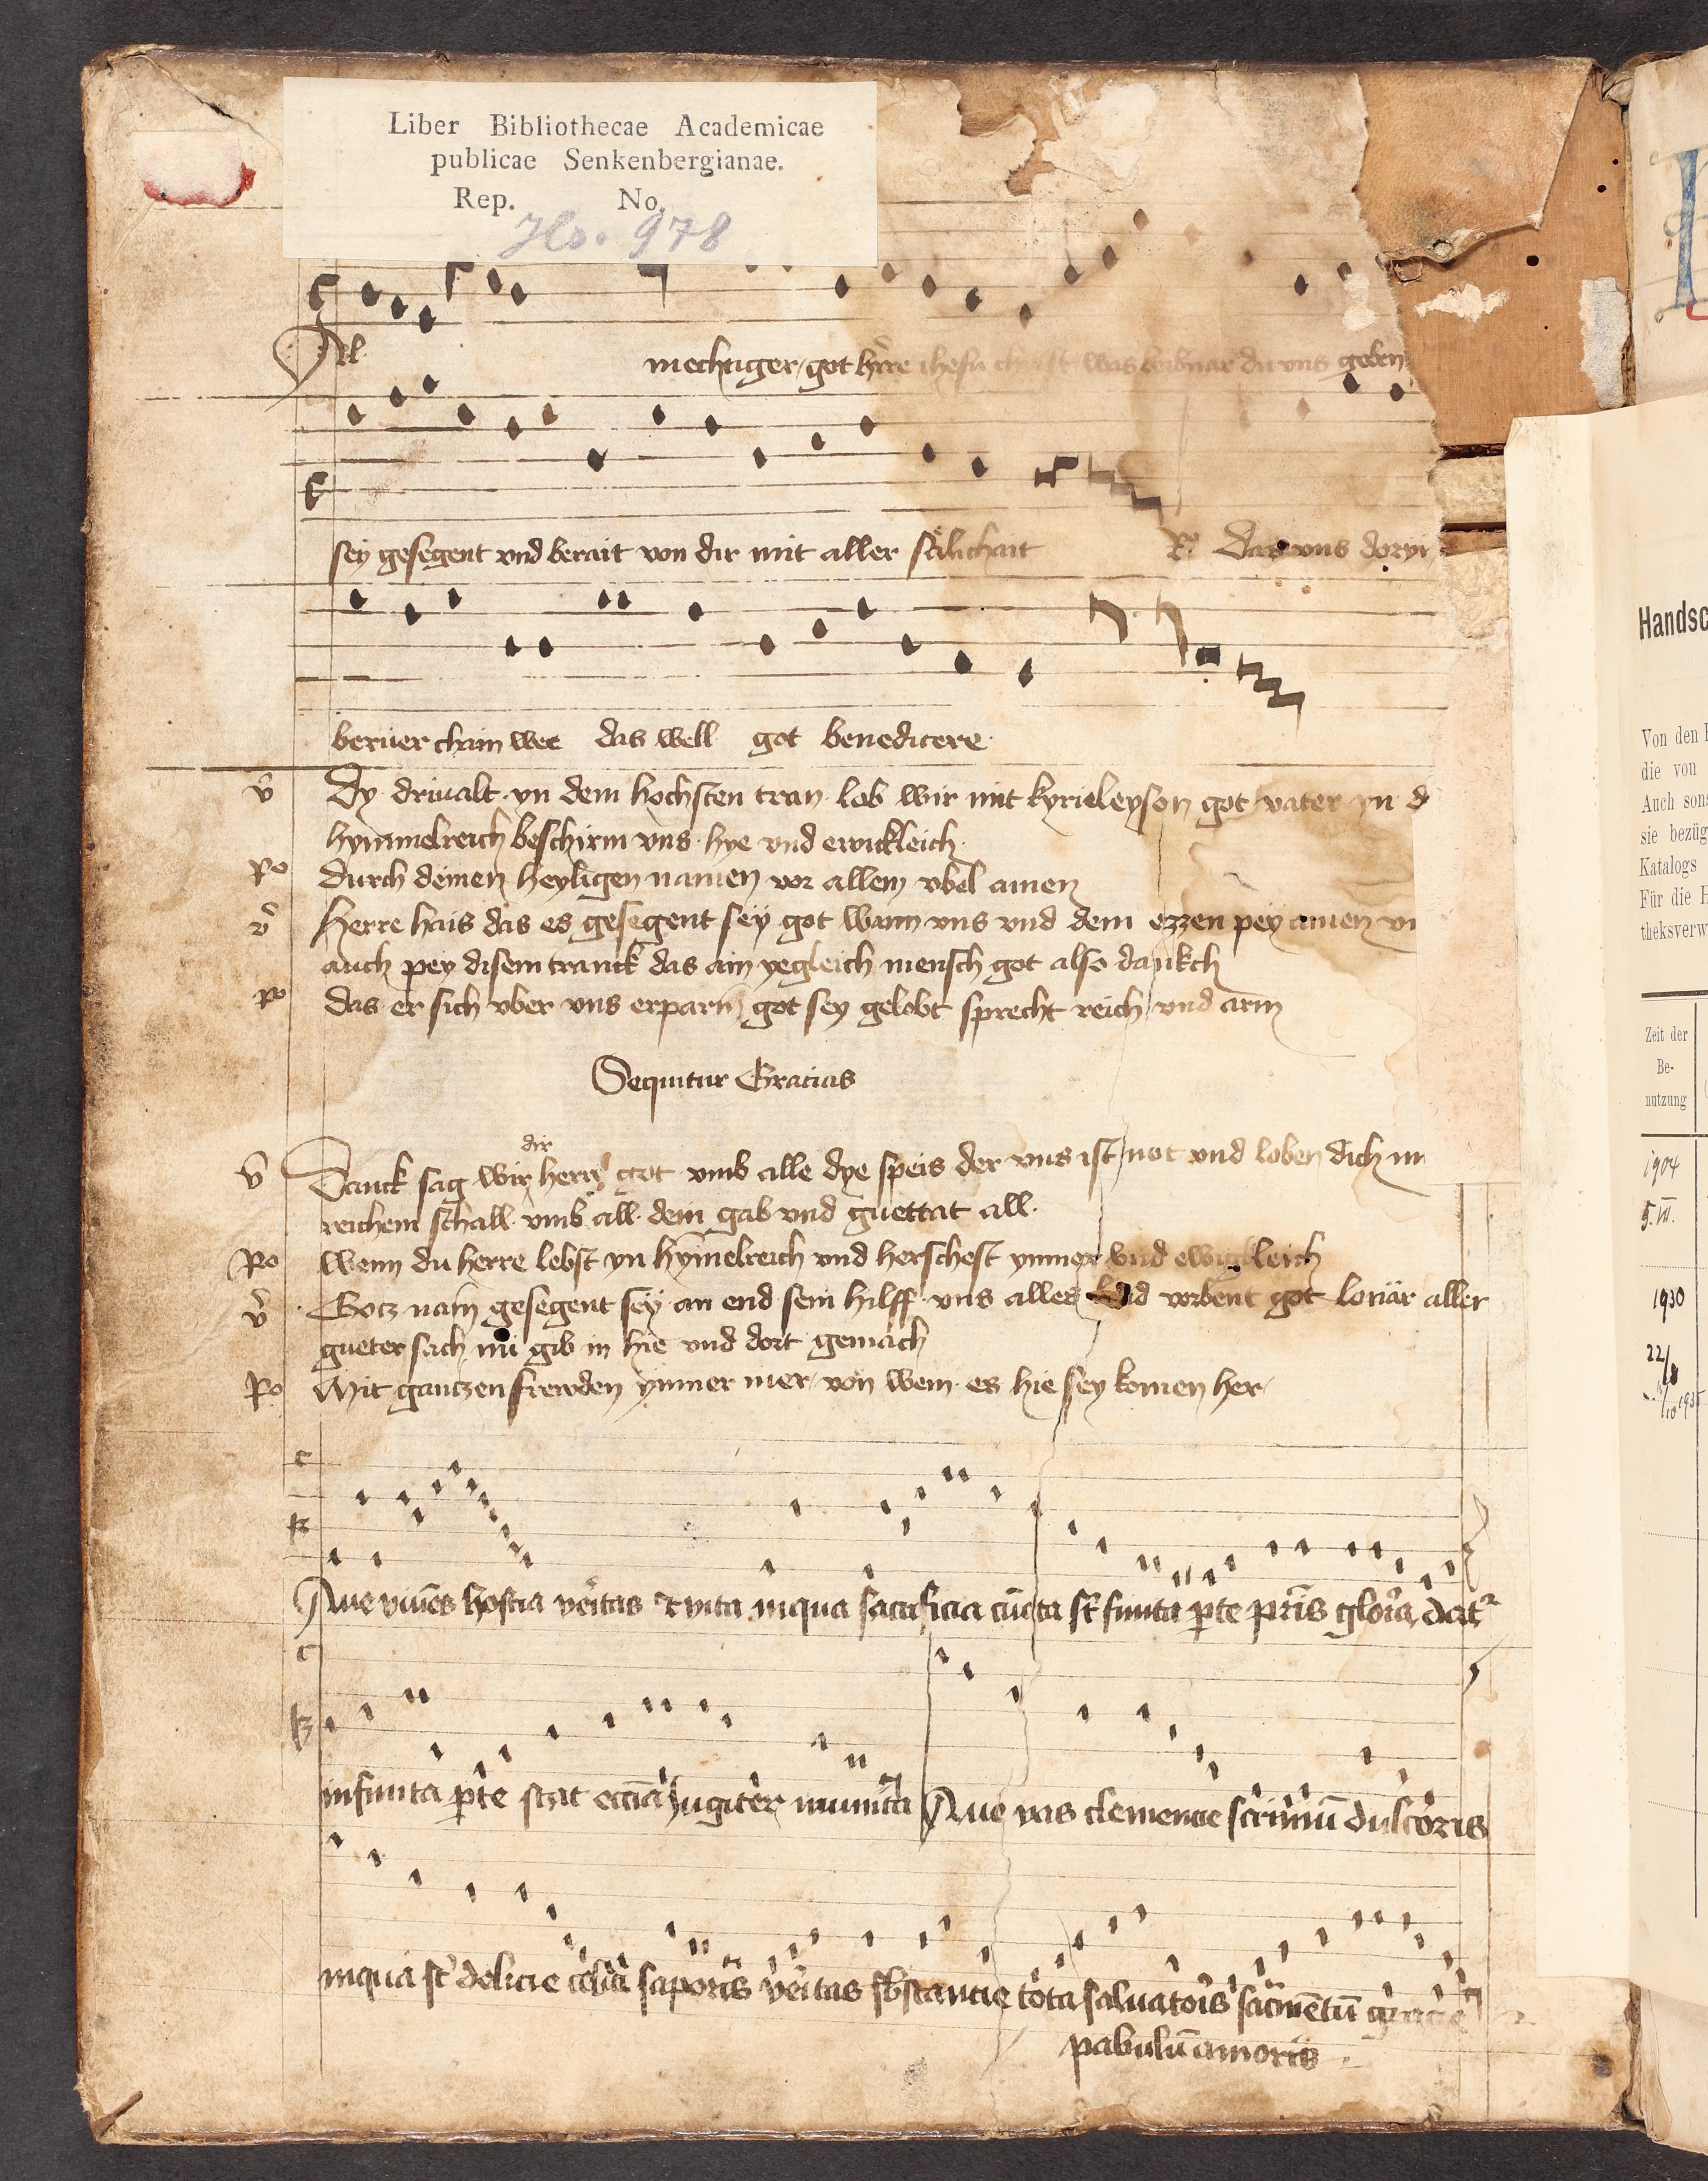 Liber Bibliothecae Academicae
publicae Senkenbergianae.
Rep. No.
Hs. 978
Al mechtiger got hrre ihesu christ was du uns geben
sey gesegent vnd berait von dir mit aller sälichait R° Das vns
berüer chain wee das well got benedicere
v Dy driualt yn dem hochsten tran lob wir mit kyrieleyson got vater yn d
hymmelreich beschirm vns hye vnd ewickleich
R° durch deinen heyligen namen vor allem vbel amen
v Herre hais das es gesegent sey got wann vns vnd dem ezzen pey
auch pey disem tranck das ain yegleich mensch got also dankch
R° das er sich vber vns erparm got sey gelobt sprecht reich vnd arm
Sequitur Gracias
v Danck sag wir dir herre got vmb alle dye speis der vns ist not vnd loben dich
reichem schall vmb all dein gab vnd güettat all
R° Wenn du herre lebst yn hymelreich vnd herschest ymmer vnd ewigkleich
v Gotz nam gesegent sey an end sein hilff vns alles laid wend got lonär aller
gueter sach nu gib in hie vnd dort gemach
R° Mit gantzen frewden ymmer mer von wem es hie sey komen her
Aue viuēs hostia vēitas & vita inqua sacrificia cūcta st finita p̄te pr̄is gloria dat²
infinita p̄te stat ecc̄ia jugiter munita Aue vas clemencie scriniū dulcoris
inqua st delicie celici saporis veritas sbstancie tota saluatoris sacr̄mētū gracie
pabulū amoris
Handsc
Von den
die von
Auch sons
sie bezüg
Katalogs
Für die H
theksverw
Zeit der
Be-
nutzung
1904
5. VI.
1930